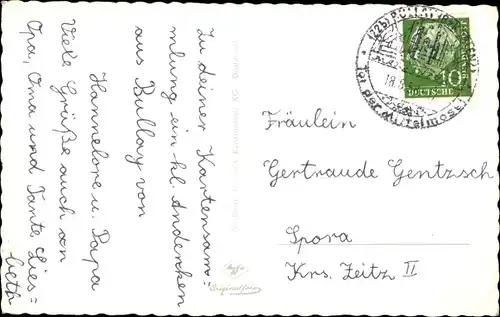 Zu deiner Kartensam=
mlung ein kl. Andenken
aus Bullay von
Hannelore u. Papa
Viele Grüße auch an
Opa, Oma und Tante Lies=
beth
(22b) BULLAY
18.
Tor der Mittelmosel
10
DEUTSCHE
Fräulein
Gertraude Gentzsch
Spora
Krs. Zeitz II
Originalfoto